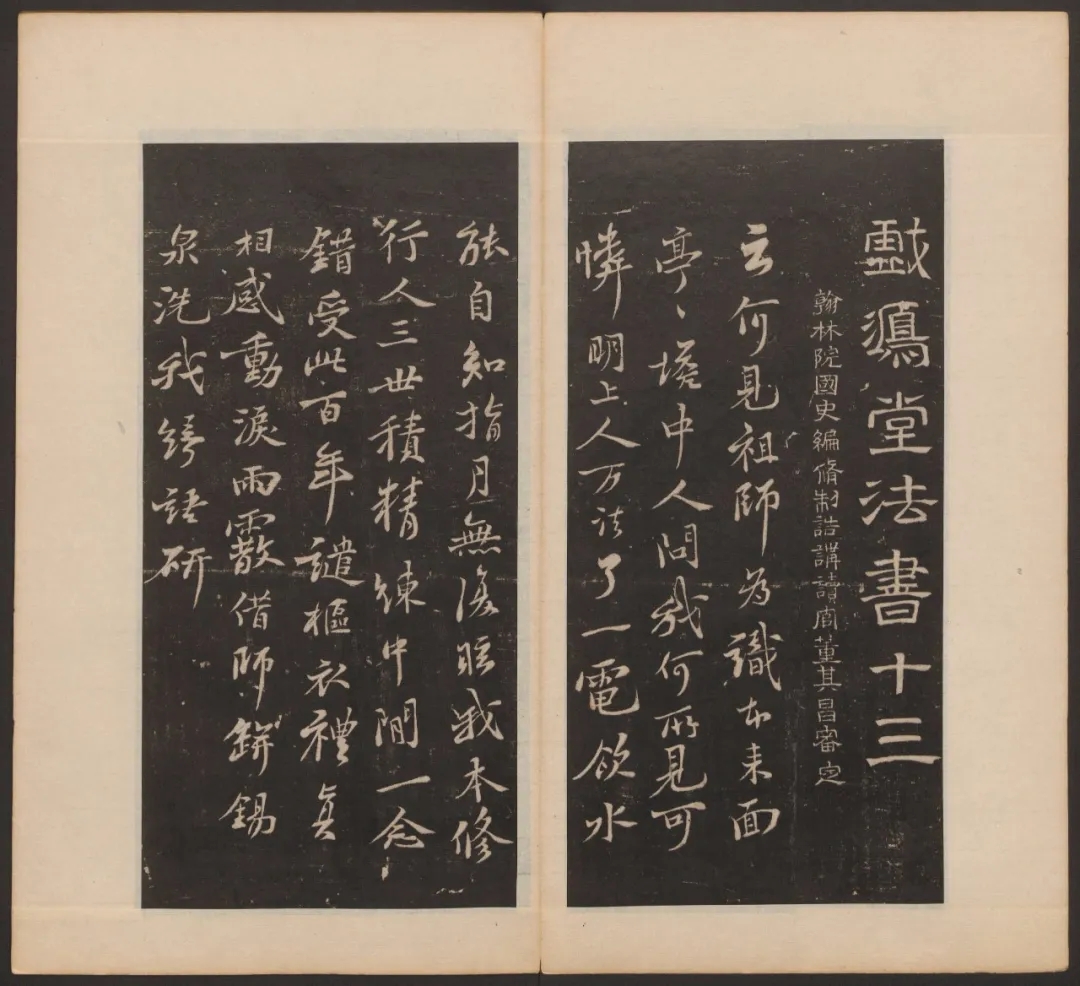 戲鴻堂法書十三
翰林院國史編脩制誥講讀官董其昌審定
云何見祖師為識本来面
亭〻墖中人問我何所見可
憐明上人万法了一電飲水
能自知指月無復眩我本修
行人三世積精練中間一念
錯受此百年譴樞衣禮真
相感動淚雨霰借師錫
泉洗我綺語研